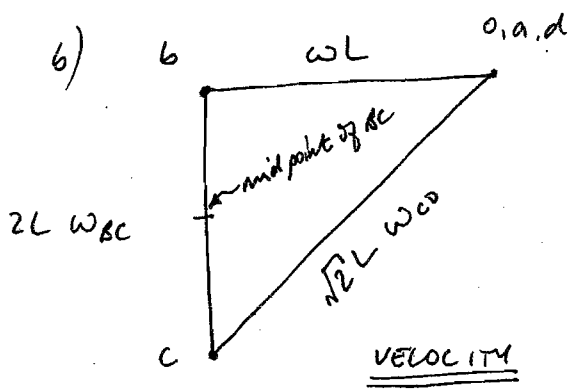 6) b ωL o,a,d
mid point of BC
2L ω_BC
√2 L ω_CD
c
VELOCITY